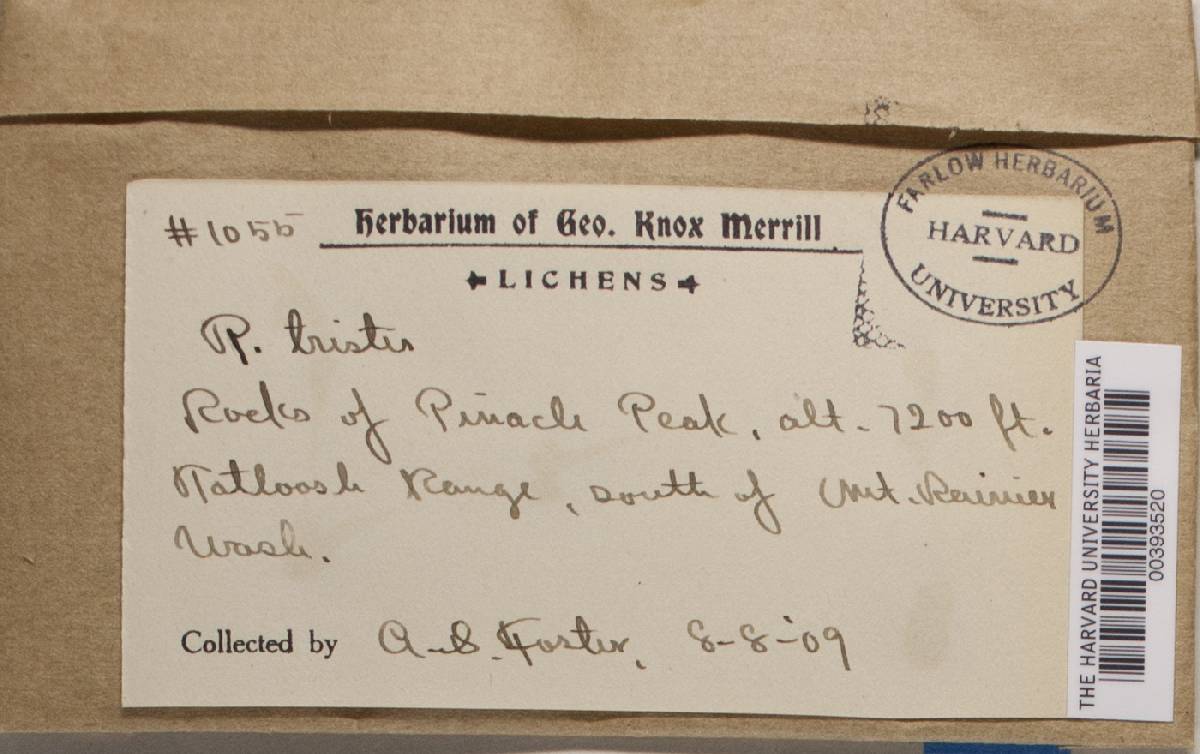 #1055 Herbarium of Geo. Knox Merrill
LICHENS
FARLOW HERBARIUM
HARVARD
UNIVERSITY
R. tristis
Rocks of Pinacle Peak, alt. 7200 ft.
Tatloosh Range, south of Mt. Rainier
Wash.
Collected by A.S. Foster, 8-8-09
THE HARVARD UNIVERSITY HERBARIA
00393520